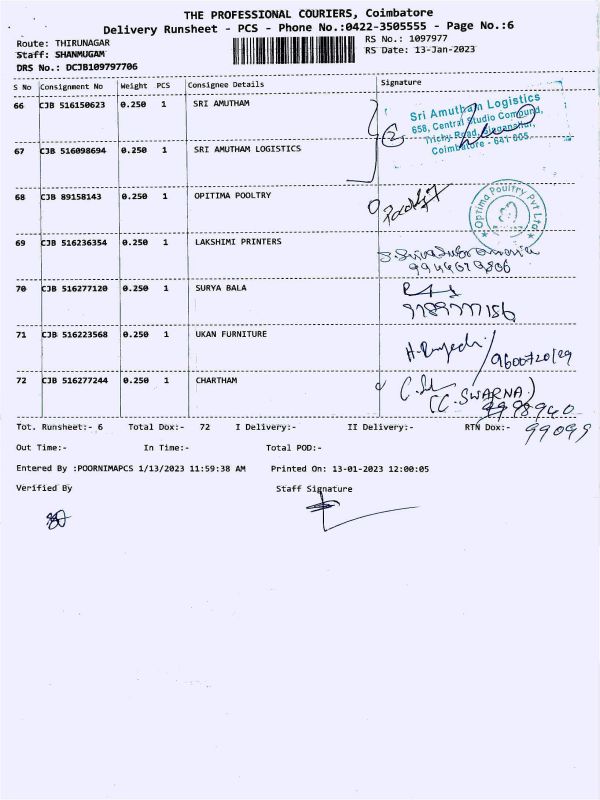 THE PROFESSIONAL COURIERS, Coimbatore
Delivery Runsheet - PCS - Phone No.:0422-3505555 - Page No.:6
Route: THIRUNAGAR
RS No.: 1097977
Staff: SHANMUGAM
RS Date: 13-Jan-2023
DRS No.: DCJB109797706
S No Consignment No Weight PCS Consignee Details Signature
66 CJB 516150623 0.250 1 SRI AMUTHAM
Sri Amutham Logistics
658, Central Studio Compound,
Trichy Road, Singanallur,
Coimbatore - 641 005.
2
67 CJB 516098694 0.250 1 SRI AMUTHAM LOGISTICS
68 CJB 89158143 0.250 1 OPITIMA POOLTRY
Optima Poultry Pvt Ltd
69 CJB 516236354 0.250 1 LAKSHIMI PRINTERS
70 CJB 516277120 0.250 1 SURYA BALA
71 CJB 516223568 0.250 1 UKAN FURNITURE
9600720129
72 CJB 516277244 0.250 1 CHARTHAM
(C. SWARNA)
Tot. Runsheet:- 6 Total Dox:- 72 I Delivery:- II Delivery:- RTN Dox:-
99099
Out Time:- In Time:- Total POD:-
Entered By :POORNIMAPCS 1/13/2023 11:59:38 AM Printed On: 13-01-2023 12:00:05
Verified By Staff Signature